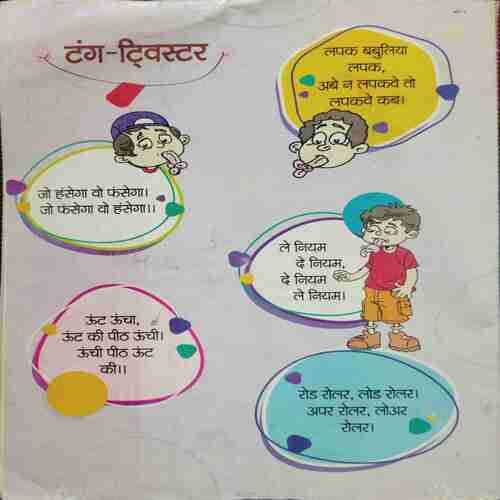 टंग-ट्विस्टर
लपक बबुलिया
लपक,
अबे न लपकवे तो
लपकवे कब।
जो हंसेगा वो फंसेगा।
जो फंसेगा वो हंसेगा।।
ले नियम
दे नियम,
दे नियम
ले नियम।
ऊंट ऊंचा,
ऊंट की पीठ ऊंची।
ऊंची पीठ ऊंट
की।।
रोड रोलर, लोड रोलर।
अपर रोलर, लोअर
रोलर।